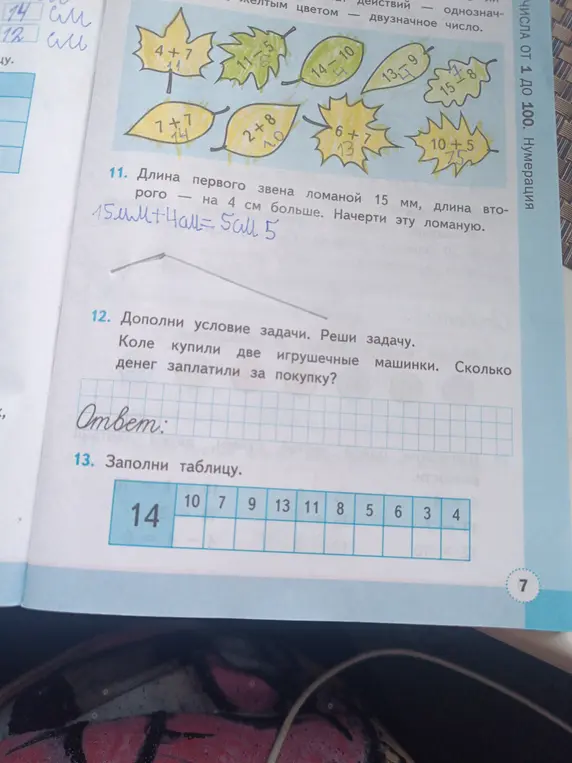 14 см
12 см
цу.
действий — однознач-
жёлтым цветом — двузначное число.
4 + 7
11
11 − 5
6
14 − 10
4
13 − 9
4
15 − 8
7
7 + 7
14
2 + 8
10
6 + 7
13
10 + 5
15
11. Длина первого звена ломаной 15 мм, длина вто-
рого — на 4 см больше. Начерти эту ломаную.
15мм+4см=5см 5
12. Дополни условие задачи. Реши задачу.
Коле купили две игрушечные машинки. Сколько
денег заплатили за покупку?
Ответ:
13. Заполни таблицу.
14
10 7 9 13 11 8 5 6 3 4
7
ЧИСЛА ОТ 1 ДО 100. Нумерация